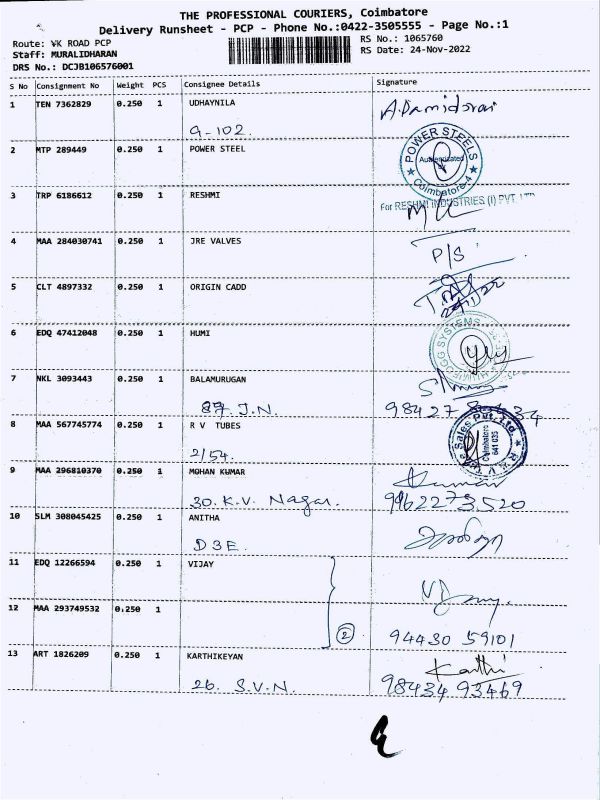 THE PROFESSIONAL COURIERS, Coimbatore
Delivery Runsheet - PCP - Phone No.:0422-3505555 - Page No.:1
Route: VK ROAD PCP
RS No.: 1065760
Staff: MURALIDHARAN
RS Date: 24-Nov-2022
DRS No.: DCJB106576001
S No Consignment No Weight PCS Consignee Details Signature
1 TEN 7362829 0.250 1 UDHAYNILA
9-102.
2 MTP 289449 0.250 1 POWER STEEL
POWER STEELS
Authenticated
Coimbatore-4
3 TRP 6186612 0.250 1 RESHMI
For RESHMI INDUSTRIES (I) PVT. LTD
4 MAA 284030741 0.250 1 JRE VALVES
P/S
5 CLT 4897332 0.250 1 ORIGIN CADD
6 EDQ 47412048 0.250 1 HUMI
SYSTEMS
7 NKL 3093443 0.250 1 BALAMURUGAN
87. J.N.
98427
8 MAA 567745774 0.250 1 R V TUBES
2/54.
Sales Pvt. Ltd.
Coimbatore
641 035
9 MAA 296810370 0.250 1 MOHAN KUMAR
Kumar
30. K.V. Nagar.
9962273520
10 SLM 308045425 0.250 1 ANITHA
D3E.
11 EDQ 12266594 0.250 1 VIJAY
12 MAA 293749532 0.250 1
2
94430 59101
13 ART 1826209 0.250 1 KARTHIKEYAN
Karthi
26. S.V.N.
98434 93469